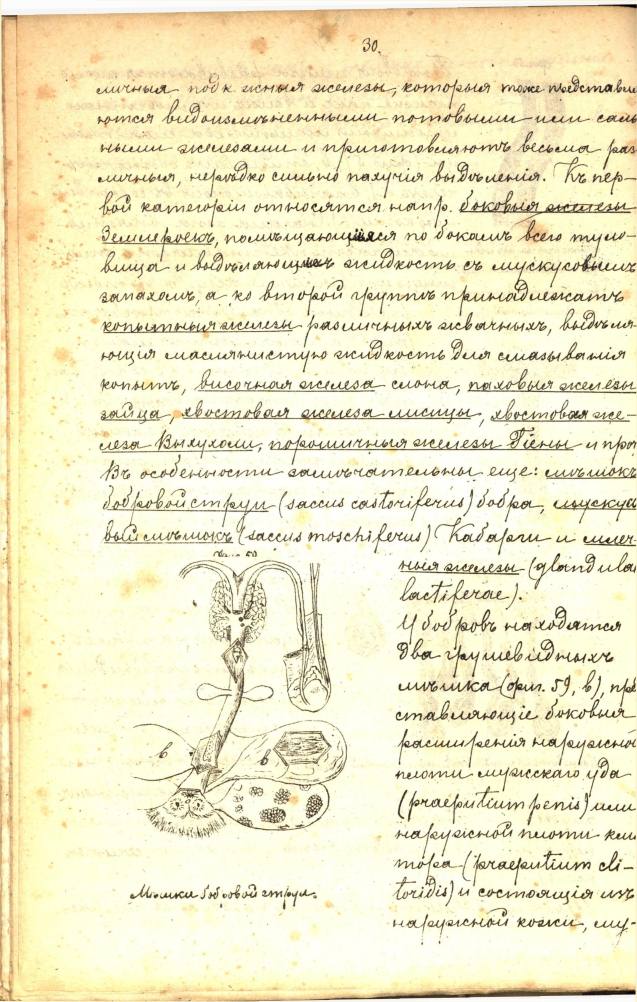 30.
личныя подк жныя железы, которыя тоже представля
ются видоизмѣненными потовыми или саль
ными железами и приготовляютъ весьма раз
личныя, нерѣдко сильно пахучія выдѣленія. Къ пер-
вой категоріи относятся напр. боковыя железы
Землероекъ, помѣщающіяся по бокамъ всего туло-
вища и выдѣляющихъ жидкость съ мускусовымъ
запахомъ, а ко второй группѣ принадлежатъ
копытныя железы различныхъ жвачныхъ, выдѣля-
ющія маслянистую жидкость для смазыванія
копытъ, височная железа слона, паховыя железы
зайца, хвостовая железа лисицы, хвостовая же-
леза Выхухоли, порошичныя железы Гіены и проч
Въ особенности замѣчательны еще: мѣшокъ
бобровой струи (saccus castoriferus) бобра, мускусо
вый мѣшокъ (saccus moschiferus) Кабарги и млеч-
ныя железы (glandulae
lactiferae).
У бобровъ находятся
два грушевидныхъ
мѣшка (фиг. 59, b), пред
ставляющіе боковыя
расширенія наружной
плоти мужскаго уда
(praeputium penis) или
наружной плоти кли
тора (praeputium cli-
toridis) и состоящія изъ
наружной кожи, му-
Фиг. 59
b
b
Мѣшки бобровой струи.